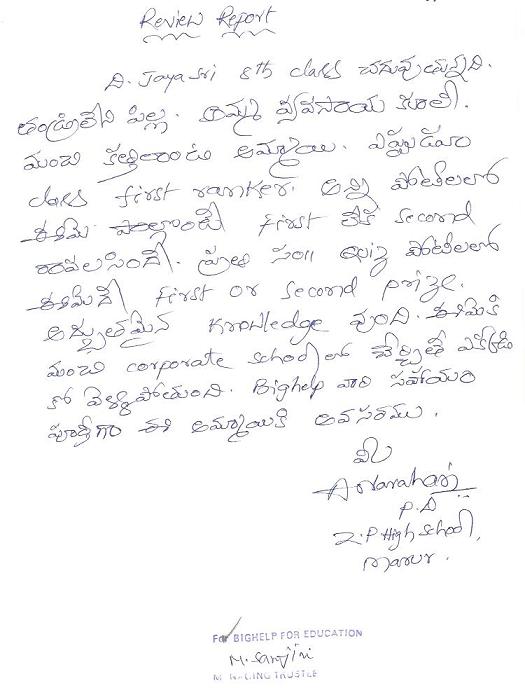 Review Report
D. Jaya Sri 8th class చదువుతున్నది.
తండ్రిలేని పిల్ల. అమ్మ వ్యవసాయ కూలీ.
మంచి తెలివిగల అమ్మాయి. ఎప్పుడూ
class first ranker. అన్ని పోటీలలో
ఈమె పాల్గొంటే first లేక second
రావలసిందే. ప్రతి సం॥ quiz పోటీలలో
ఈమెదే first or second prize.
అద్భుతమైన knowledge వుంది. ఈమెకి
మంచి corporate school లో చేర్పితే ఎక్కడి
కో వెళ్ళిపోతుంది. Bighelp వారి సహాయం
పూర్తిగా ఈ అమ్మాయికి అవసరము.
A Narahari
P.D
Z.P High School,
Marur.
For BIGHELP FOR EDUCATION
M. Sanjini
TRUSTEE